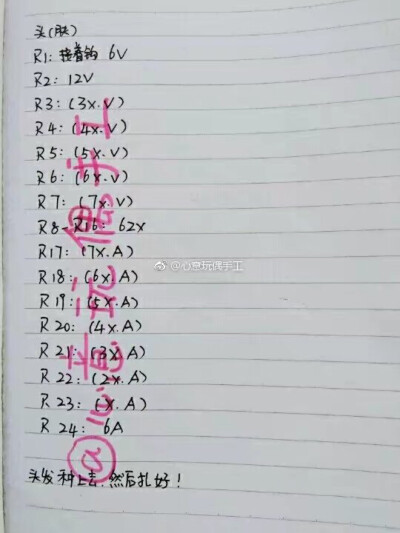 头(肤)
R1: 接着钩 6V
R2: 12V
R3: (3X.V)
R4: (4X.V)
R5: (5X.V)
R6: (6X.V)
R7: (7X.V)
R8-R16: 62X
R17: (7X.A)
R18: (6X.A)
R19: (5X.A)
R20: (4X.A)
R21: (3X.A)
R22: (2X.A)
R23: (X.A)
R24: 6A
头发种上去,然后扎好!
@心意玩偶手工
@心意玩偶手工